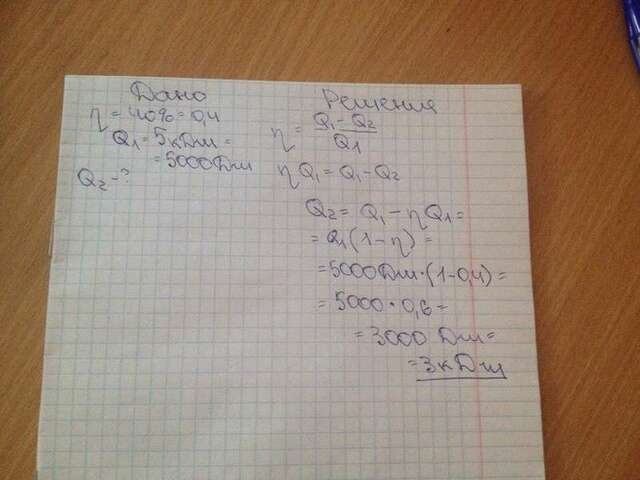 Дано
η = 40% = 0,4
Q₁ = 5кДж =
= 5000Дж
Q₂ - ?
Решения
η = (Q₁ - Q₂) / Q₁
ηQ₁ = Q₁ - Q₂
Q₂ = Q₁ - ηQ₁ =
= Q₁(1 - η) =
= 5000Дж·(1-0,4) =
= 5000 · 0,6 =
= 3000 Дж =
= 3кДж